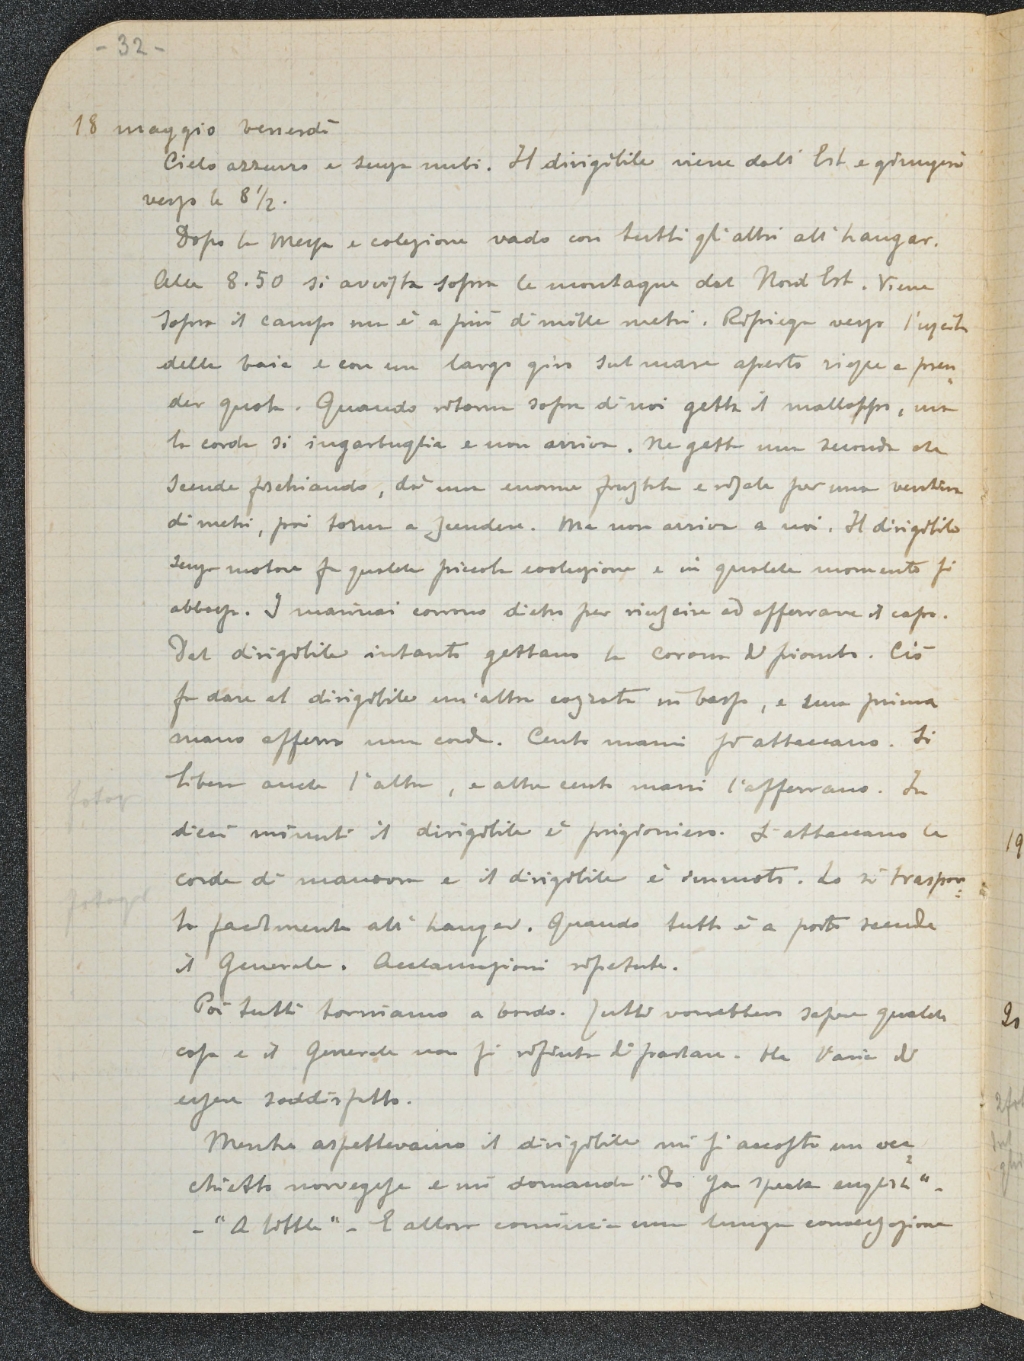 - 32 -
18 maggio venerdì
Cielo azzurro e senza nubi. Il dirigibile viene dall'Est e giungerà
verso le 8 1/2.
Dopo la Messa e colezione vado con tutti gli altri all'hangar.
Alle 8.50 si avvista sopra le montagne del Nord Est. Viene
sopra il campo ma è a più di mille metri. Ripiega verso l'uscita
della baia e con un largo giro sul mare aperto riesce a pren=
der quota. Quando ritorna sopra di noi getta il malloppo, ma
la corda si ingarbuglia e non arriva. Ne getta una seconda che
scende fischiando, dà una enorme frustata e risale per una ventina
di metri, poi torna a scendere. Ma non arriva a noi. Il dirigibile
senza motore fa qualche piccola evoluzione e in qualche momento si
abbassa. I marinai corrono dietro per riuscire ad afferrare il capo.
Dal dirigibile intanto gettano la corona di piombo. Ciò
fa dare al dirigibile un'altra in basso, e una prima
mano afferra una corda. Cento mani si attaccano. Si
libera anche l'altra, e altre cento mani l'afferrano. In
fotogr
dieci minuti il dirigibile è prigioniero. Si attaccano le
corde di manovra e il dirigibile è immoto. Lo si traspor=
fotogr.
ta facilmente all'hangar. Quando tutto è a posto scende
il Generale. Acclamazioni ripetute.
Poi tutti torniamo a bordo. Tutti vorrebbero sapere qualche
cosa e il Generale non si rifiuta di parlare. Ha l'aria di
essere soddisfatto.
Mentre aspettavamo il dirigibile mi si accosta un vec=
chietto norvegese e mi domanda "Do you speak english" -
- "A little" - E allora comincia una lunga conversazione
19
20
2 fot